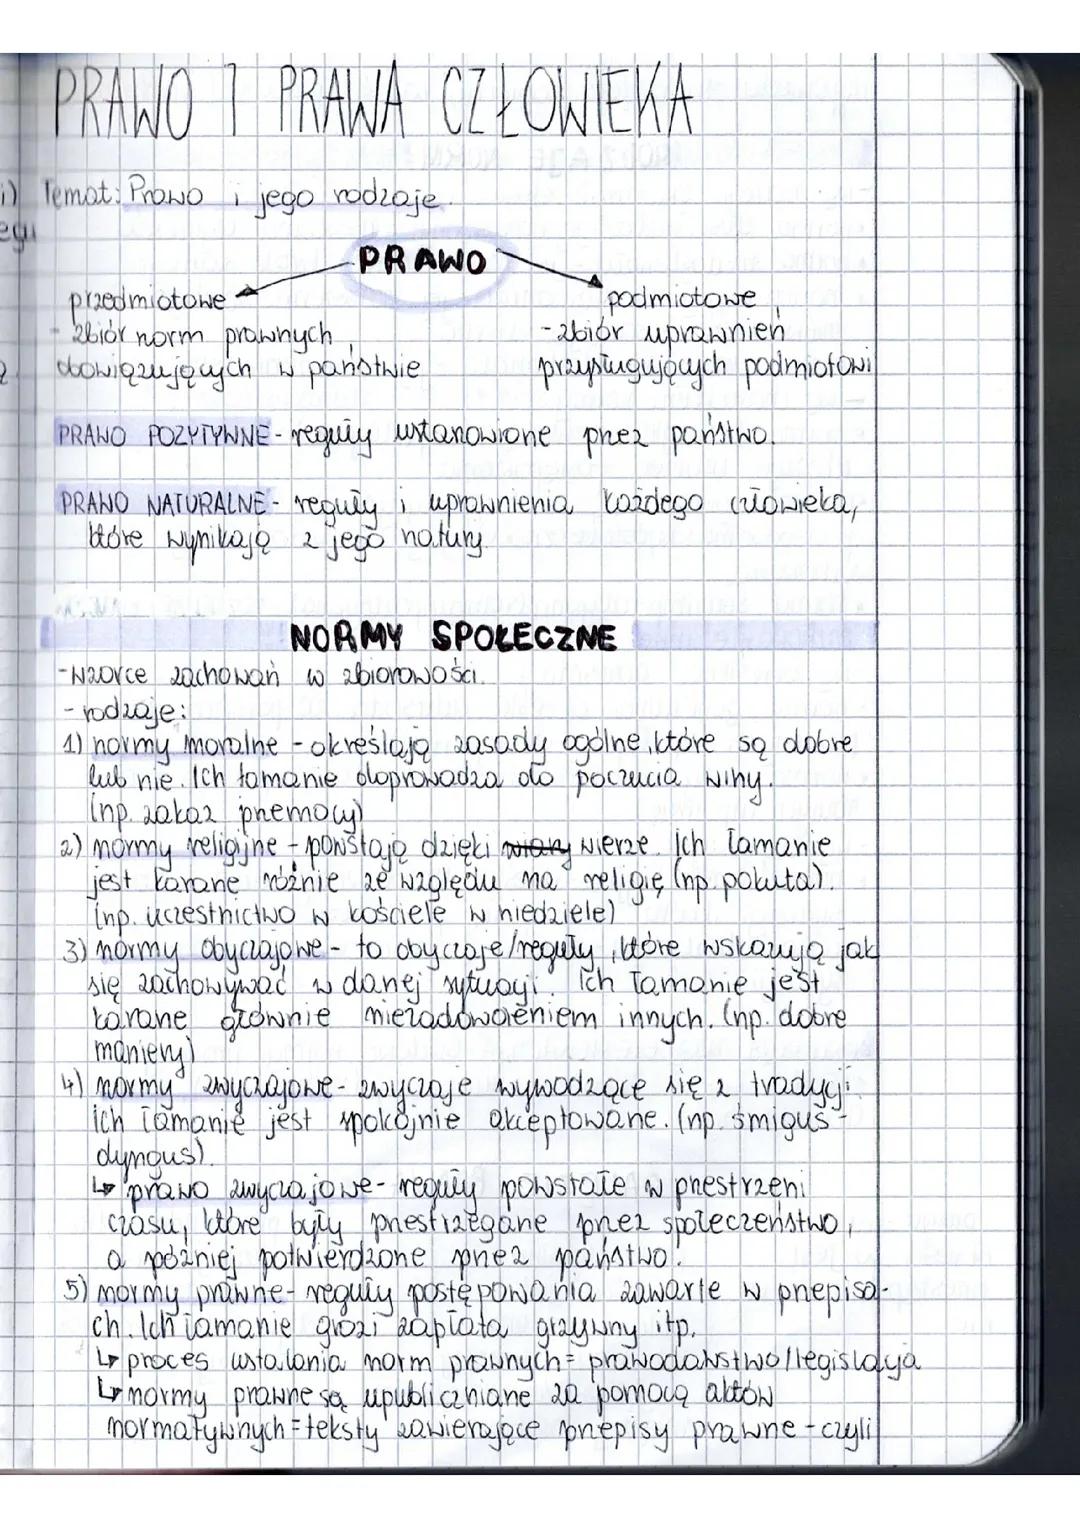 PRAWO I PRAWA CZŁOWIEKA
Temat: Prawo i jego rodzaje.
PRAWO
przedmiotowe
- zbiór norm prawnych
obowiązujących w państwie
podmiotowe
- zbiór uprawnień
przysługujących podmiotowi
PRAWO POZYTYWNE - reguły ustanowione przez państwo.
PRAWO NATURALNE - reguły i uprawnienia każdego człowieka,
które wynikają z jego natury.
NORMY SPOŁECZNE
- wzorce zachowań w zbiorowości.
- rodzaje:
1) normy moralne - określają zasady ogólne, które są dobre
lub nie. Ich łamanie doprowadza do poczucia winy.
(np. zakaz przemocy)
2) normy religijne - powstają dzięki wiary wierze. Ich łamanie
jest karane różnie ze względu na religię (np. pokuta).
(np. uczestnictwo w kościele w niedziele)
3) normy obyczajowe - to obyczaje/reguły, które wskazują jak
się zachowywać w danej sytuacji. Ich łamanie jest
karane głównie niezadowoleniem innych. (np. dobre
maniery)
4) normy zwyczajowe - zwyczaje wywodzące się z tradycji.
Ich łamanie jest spokojnie akceptowane. (np. śmigus-
dyngus).
↳ prawo zwyczajowe - reguły powstałe w przestrzeni
czasu, które były przestrzegane przez społeczeństwo,
a później potwierdzone przez państwo.
5) normy prawne - reguły postępowania zawarte w przepisa-
ch. Ich łamanie grozi zapłatą grzywny itp.
↳ proces ustalania norm prawnych = prawodawstwo/legislacja
↳ normy prawne są upubliczniane za pomocą aktów
normatywnych = teksty zawierające przepisy prawne - czyli